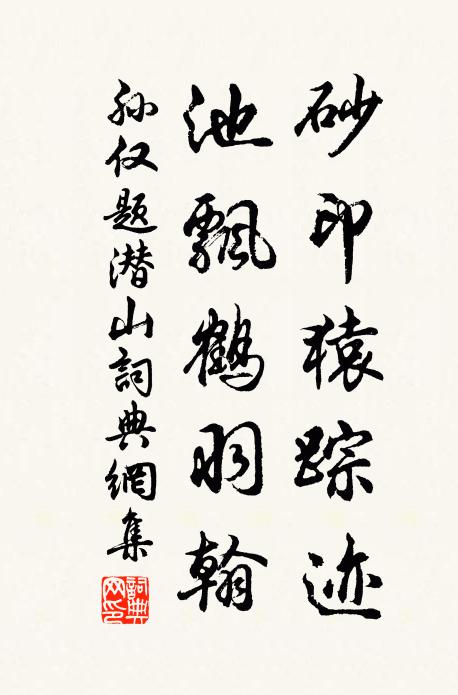 砂印猿踪迹
池飘鹤羽翰
孙仅题潜山詞典網集
詞典網印